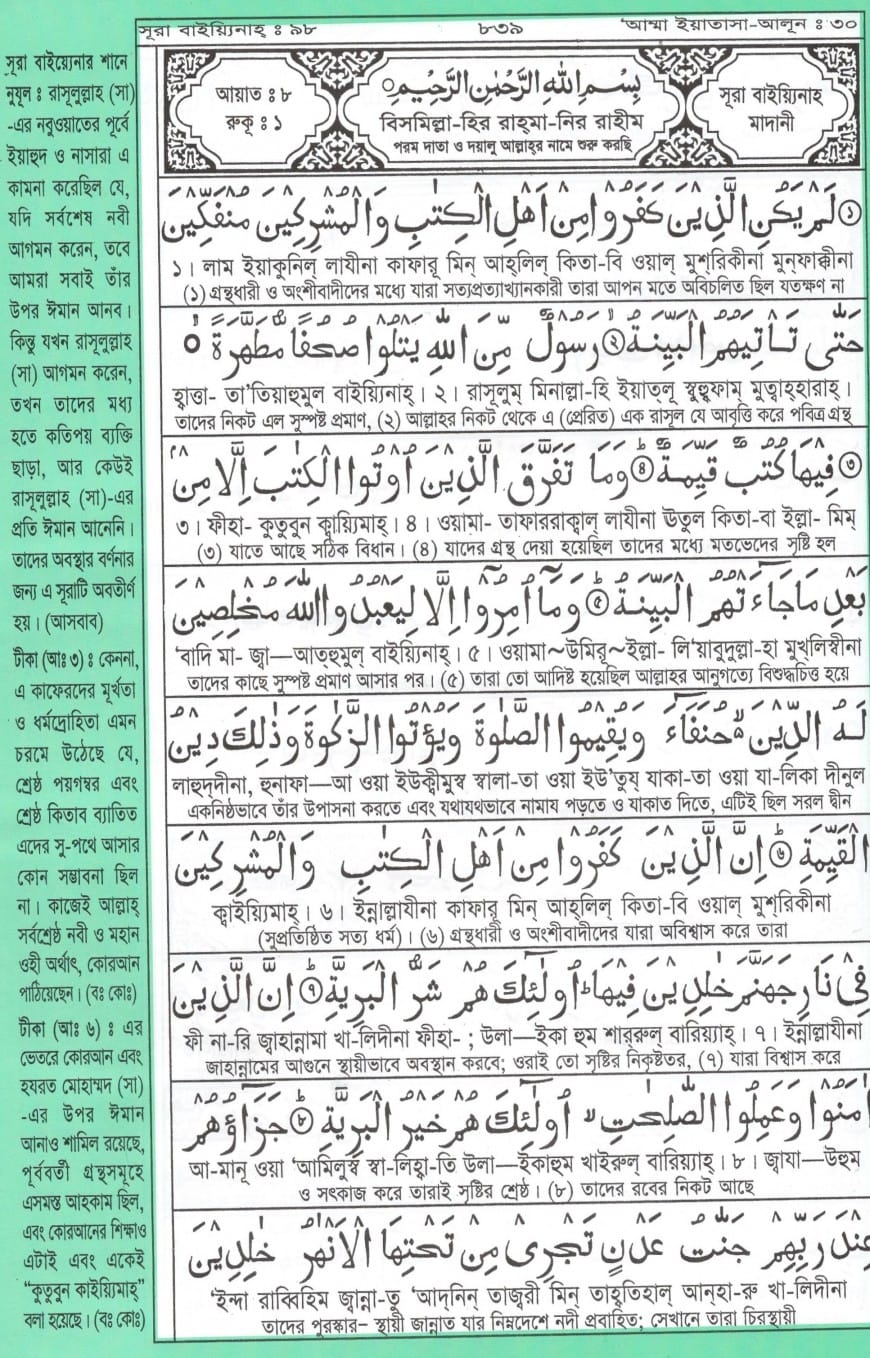 সূরা বাইয়্যিনাহ্ : ৯৮
৮৩৯
'আম্মা ইয়াতাসা-আলূন : ৩০
আয়াত : ৮
রুকূ : ১
بِسْمِ اللهِ الرَّحْمٰنِ الرَّحِيْمِ
বিসমিল্লা-হির রাহ্‌মা-নির রাহীম
পরম দাতা ও দয়ালু আল্লাহ্‌র নামে শুরু করছি
সূরা বাইয়্যিনাহ
মাদানী
সূরা বাইয়্যেনার শানে
নুযূল : রাসূলুল্লাহ (সা)
-এর নবুওয়াতের পূর্বে
ইয়াহুদ ও নাসারা এ
কামনা করেছিল যে,
যদি সর্বশেষ নবী
আগমন করেন, তবে
আমরা সবাই তাঁর
উপর ঈমান আনব।
কিন্তু যখন রাসূলুল্লাহ
(সা) আগমন করেন,
তখন তাদের মধ্য
হতে কতিপয় ব্যক্তি
ছাড়া, আর কেউই
রাসূলুল্লাহ (সা)-এর
প্রতি ঈমান আনেনি।
তাদের অবস্থার বর্ণনার
জন্য এ সূরাটি অবতীর্ণ
হয়। (আসবাব)
টীকা (আঃ ৩) : কেননা,
এ কাফেরদের মূর্খতা
ও ধর্মদ্রোহিতা এমন
চরমে উঠেছে যে,
শ্রেষ্ঠ পয়গম্বর এবং
শ্রেষ্ঠ কিতাব ব্যতিত
এদের সু-পথে আসার
কোন সম্ভাবনা ছিল
না। কাজেই আল্লাহ্
সর্বশ্রেষ্ঠ নবী ও মহান
ওহী অর্থাৎ, কোরআন
পাঠিয়েছেন। (বঃ কোঃ)
টীকা (আঃ ৬) : এর
ভেতরে কোরআন এবং
হযরত মোহাম্মদ (সা)
-এর উপর ঈমান
আনাও শামিল রয়েছে,
পূর্ববর্তী গ্রন্থসমূহে
এসমস্ত আহকাম ছিল,
এবং কোরআনের শিক্ষাও
এটাই এবং একেই
“কুতুবুন কাইয়্যিমাহ্”
বলা হয়েছে। (বঃ কোঃ)
① لَمْ يَكُنِ الَّذِيْنَ كَفَرُوْا مِنْ اَهْلِ الْكِتٰبِ وَالْمُشْرِكِيْنَ مُنْفَكِّيْنَ
১। লাম ইয়াকুনিল্ লাযীনা কাফারূ মিন্ আহ্‌লিল্ কিতা-বি ওয়াল্ মুশ্‌রিকীনা মুন্‌ফাক্কীনা
(১) গ্রন্থধারী ও অংশীবাদীদের মধ্যে যারা সত্যপ্রত্যাখ্যানকারী তারা আপন মতে অবিচলিত ছিল যতক্ষণ না
حَتّٰى تَاْتِيَهُمُ الْبَيِّنَةُ ② رَسُوْلٌ مِّنَ اللهِ يَتْلُوْا صُحُفًا مُّطَهَّرَةً ○
হাত্তা- তা'তিয়াহুমুল বাইয়্যিনাহ্। ২। রাসূলুম্ মিনাল্লা-হি ইয়াত্‌লূ স্বুহুফাম্ মুত্বাহ্‌হারাহ্।
তাদের নিকট এল সুস্পষ্ট প্রমাণ, (২) আল্লাহর নিকট থেকে এ (প্রেরিত) এক রাসূল যে আবৃত্তি করে পবিত্র গ্রন্থ
③ فِيْهَا كُتُبٌ قَيِّمَةٌ ④ وَمَا تَفَرَّقَ الَّذِيْنَ اُوْتُوا الْكِتٰبَ اِلَّا مِنْۢ
৩। ফীহা- কুতুবুন ক্বাইয়্যিমাহ্। ৪। ওয়ামা- তাফাররাক্বাল্ লাযীনা ঊতুল কিতা-বা ইল্লা- মিম্
(৩) যাতে আছে সঠিক বিধান। (৪) যাদের গ্রন্থ দেয়া হয়েছিল তাদের মধ্যে মতভেদের সৃষ্টি হল
بَعْدِ مَا جَآءَتْهُمُ الْبَيِّنَةُ ⑤ وَمَآ اُمِرُوْٓا اِلَّا لِيَعْبُدُوا اللهَ مُخْلِصِيْنَ
'বাদি মা- জ্বা—আত্‌হুমুল্ বাইয়্যিনাহ্। ৫। ওয়ামা~উমিরূ~ইল্লা- লি'য়াবুদুল্লা-হা মুখ্‌লিস্বীনা
তাদের কাছে সুস্পষ্ট প্রমাণ আসার পর। (৫) তারা তো আদিষ্ট হয়েছিল আল্লাহর আনুগত্যে বিশুদ্ধচিত্ত হয়ে
لَهُ الدِّيْنَ حُنَفَآءَ وَيُقِيْمُوا الصَّلٰوةَ وَيُؤْتُوا الزَّكٰوةَ وَذٰلِكَ دِيْنُ
লাহুদ্‌দীনা, হুনাফা—আ ওয়া ইউক্বীমুস্ব স্বালা-তা ওয়া ইউ'তুয্ যাকা-তা ওয়া যা-লিকা দীনুল
একনিষ্ঠভাবে তাঁর উপাসনা করতে এবং যথাযথভাবে নামায পড়তে ও যাকাত দিতে, এটিই ছিল সরল দ্বীন
الْقَيِّمَةِ ⑥ اِنَّ الَّذِيْنَ كَفَرُوْا مِنْ اَهْلِ الْكِتٰبِ وَالْمُشْرِكِيْنَ
ক্বাইয়্যিমাহ্। ৬। ইন্নাল্লাযীনা কাফারূ মিন্ আহ্‌লিল্ কিতা-বি ওয়াল্ মুশ্‌রিকীনা
(সুপ্রতিষ্ঠিত সত্য ধর্ম)। (৬) গ্রন্থধারী ও অংশীবাদীদের যারা অবিশ্বাস করে তারা
فِيْ نَارِ جَهَنَّمَ خٰلِدِيْنَ فِيْهَا ۚ اُولٰٓئِكَ هُمْ شَرُّ الْبَرِيَّةِ ⑦ اِنَّ الَّذِيْنَ
ফী না-রি জ্বাহান্নামা খা-লিদীনা ফীহা- ; উলা—ইকা হুম শার্‌রুল্ বারিয়্যাহ্। ৭। ইন্নাল্লাযীনা
জাহান্নামের আগুনে স্থায়ীভাবে অবস্থান করবে; ওরাই তো সৃষ্টির নিকৃষ্টতর, (৭) যারা বিশ্বাস করে
اٰمَنُوْا وَعَمِلُوا الصّٰلِحٰتِ اُولٰٓئِكَ هُمْ خَيْرُ الْبَرِيَّةِ ⑧ جَزَآؤُهُمْ
আ-মানূ ওয়া 'আমিলুস্ব স্বা-লিহা-তি উলা—ইকাহুম খাইরুল্ বারিয়্যাহ্। ৮। জ্বাযা—উহুম
ও সৎকাজ করে তারাই সৃষ্টির শ্রেষ্ঠ। (৮) তাদের রবের নিকট আছে
عِنْدَ رَبِّهِمْ جَنّٰتُ عَدْنٍ تَجْرِيْ مِنْ تَحْتِهَا الْاَنْهٰرُ خٰلِدِيْنَ
'ইন্দা রাব্বিহিম জ্বান্না-তু 'আদ্‌নিন্ তাজ্বরী মিন্ তাহ্‌তিহাল্ আন্‌হা-রু খা-লিদীনা
তাদের পুরস্কার– স্থায়ী জান্নাত যার নিম্নদেশে নদী প্রবাহিত; সেখানে তারা চিরস্থায়ী